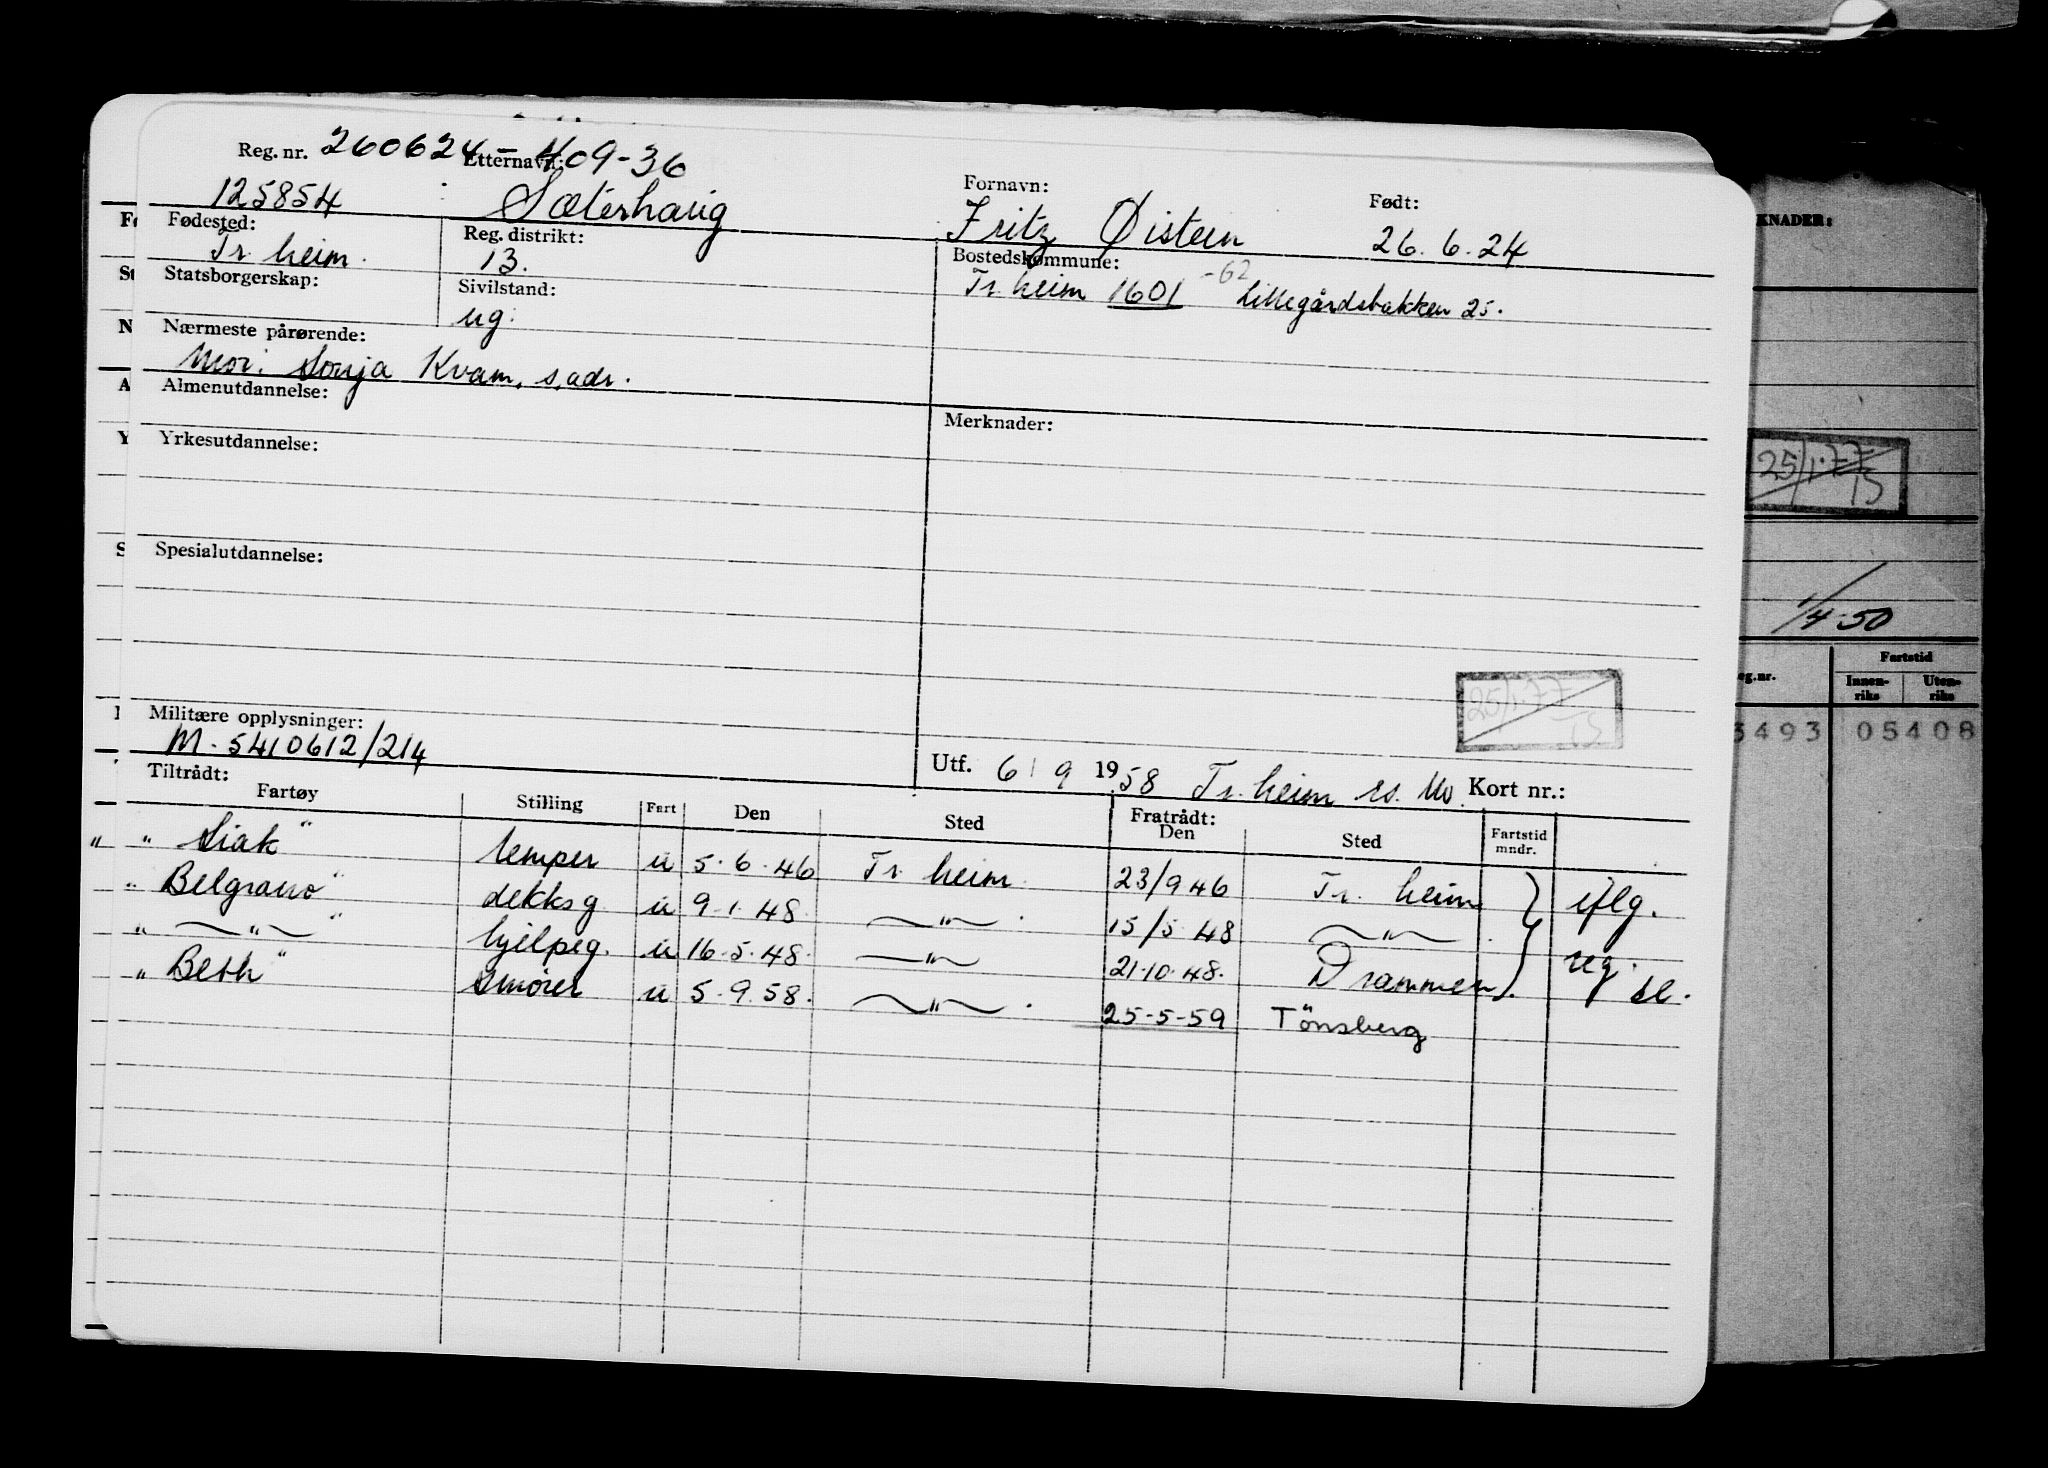 Reg. nr. 260624-40936
125854
Etternavn: Sæterhaug
Fornavn: Fritz Øistein
Født: 26.6.24
Fødested: Tr.heim.
Reg. distrikt: 13.
Bostedskommune: Tr.heim 1601 -62 Lillegårdsbakken 25.
Statsborgerskap:
Sivilstand: ug.
Nærmeste pårørende: Mor: Sonja Kvam, s.adr.
Almenutdannelse:
Merknader:
Yrkesutdannelse:
Spesialutdannelse:
25/1.77 15
Militære opplysninger: M. 5410612/214
Utf. 6/9 1958 Tr.heim Kort nr.:
Tiltrådt: Fratrådt:
Fartøy Stilling Fart Den Sted Den Sted Fartstid mndr.
" " Siak " lemper u 5.6.46 Tr.heim 23/9 46 Tr.heim } iflg.
" Belgrano " dekksg u 9.1.48 —"— 15/5 48 —"—
" —"— " hjelpeg. u 16.5.48 —"— 21.10.48. Drammen } reg. bl.
" Beth " smører u 5.9.58. —"— 25-5-59 Tönsberg
KNADER:
25/1.77 15
1/4-50
eg.nr. Fartstid
Innenriks Utenriks
3493 05408